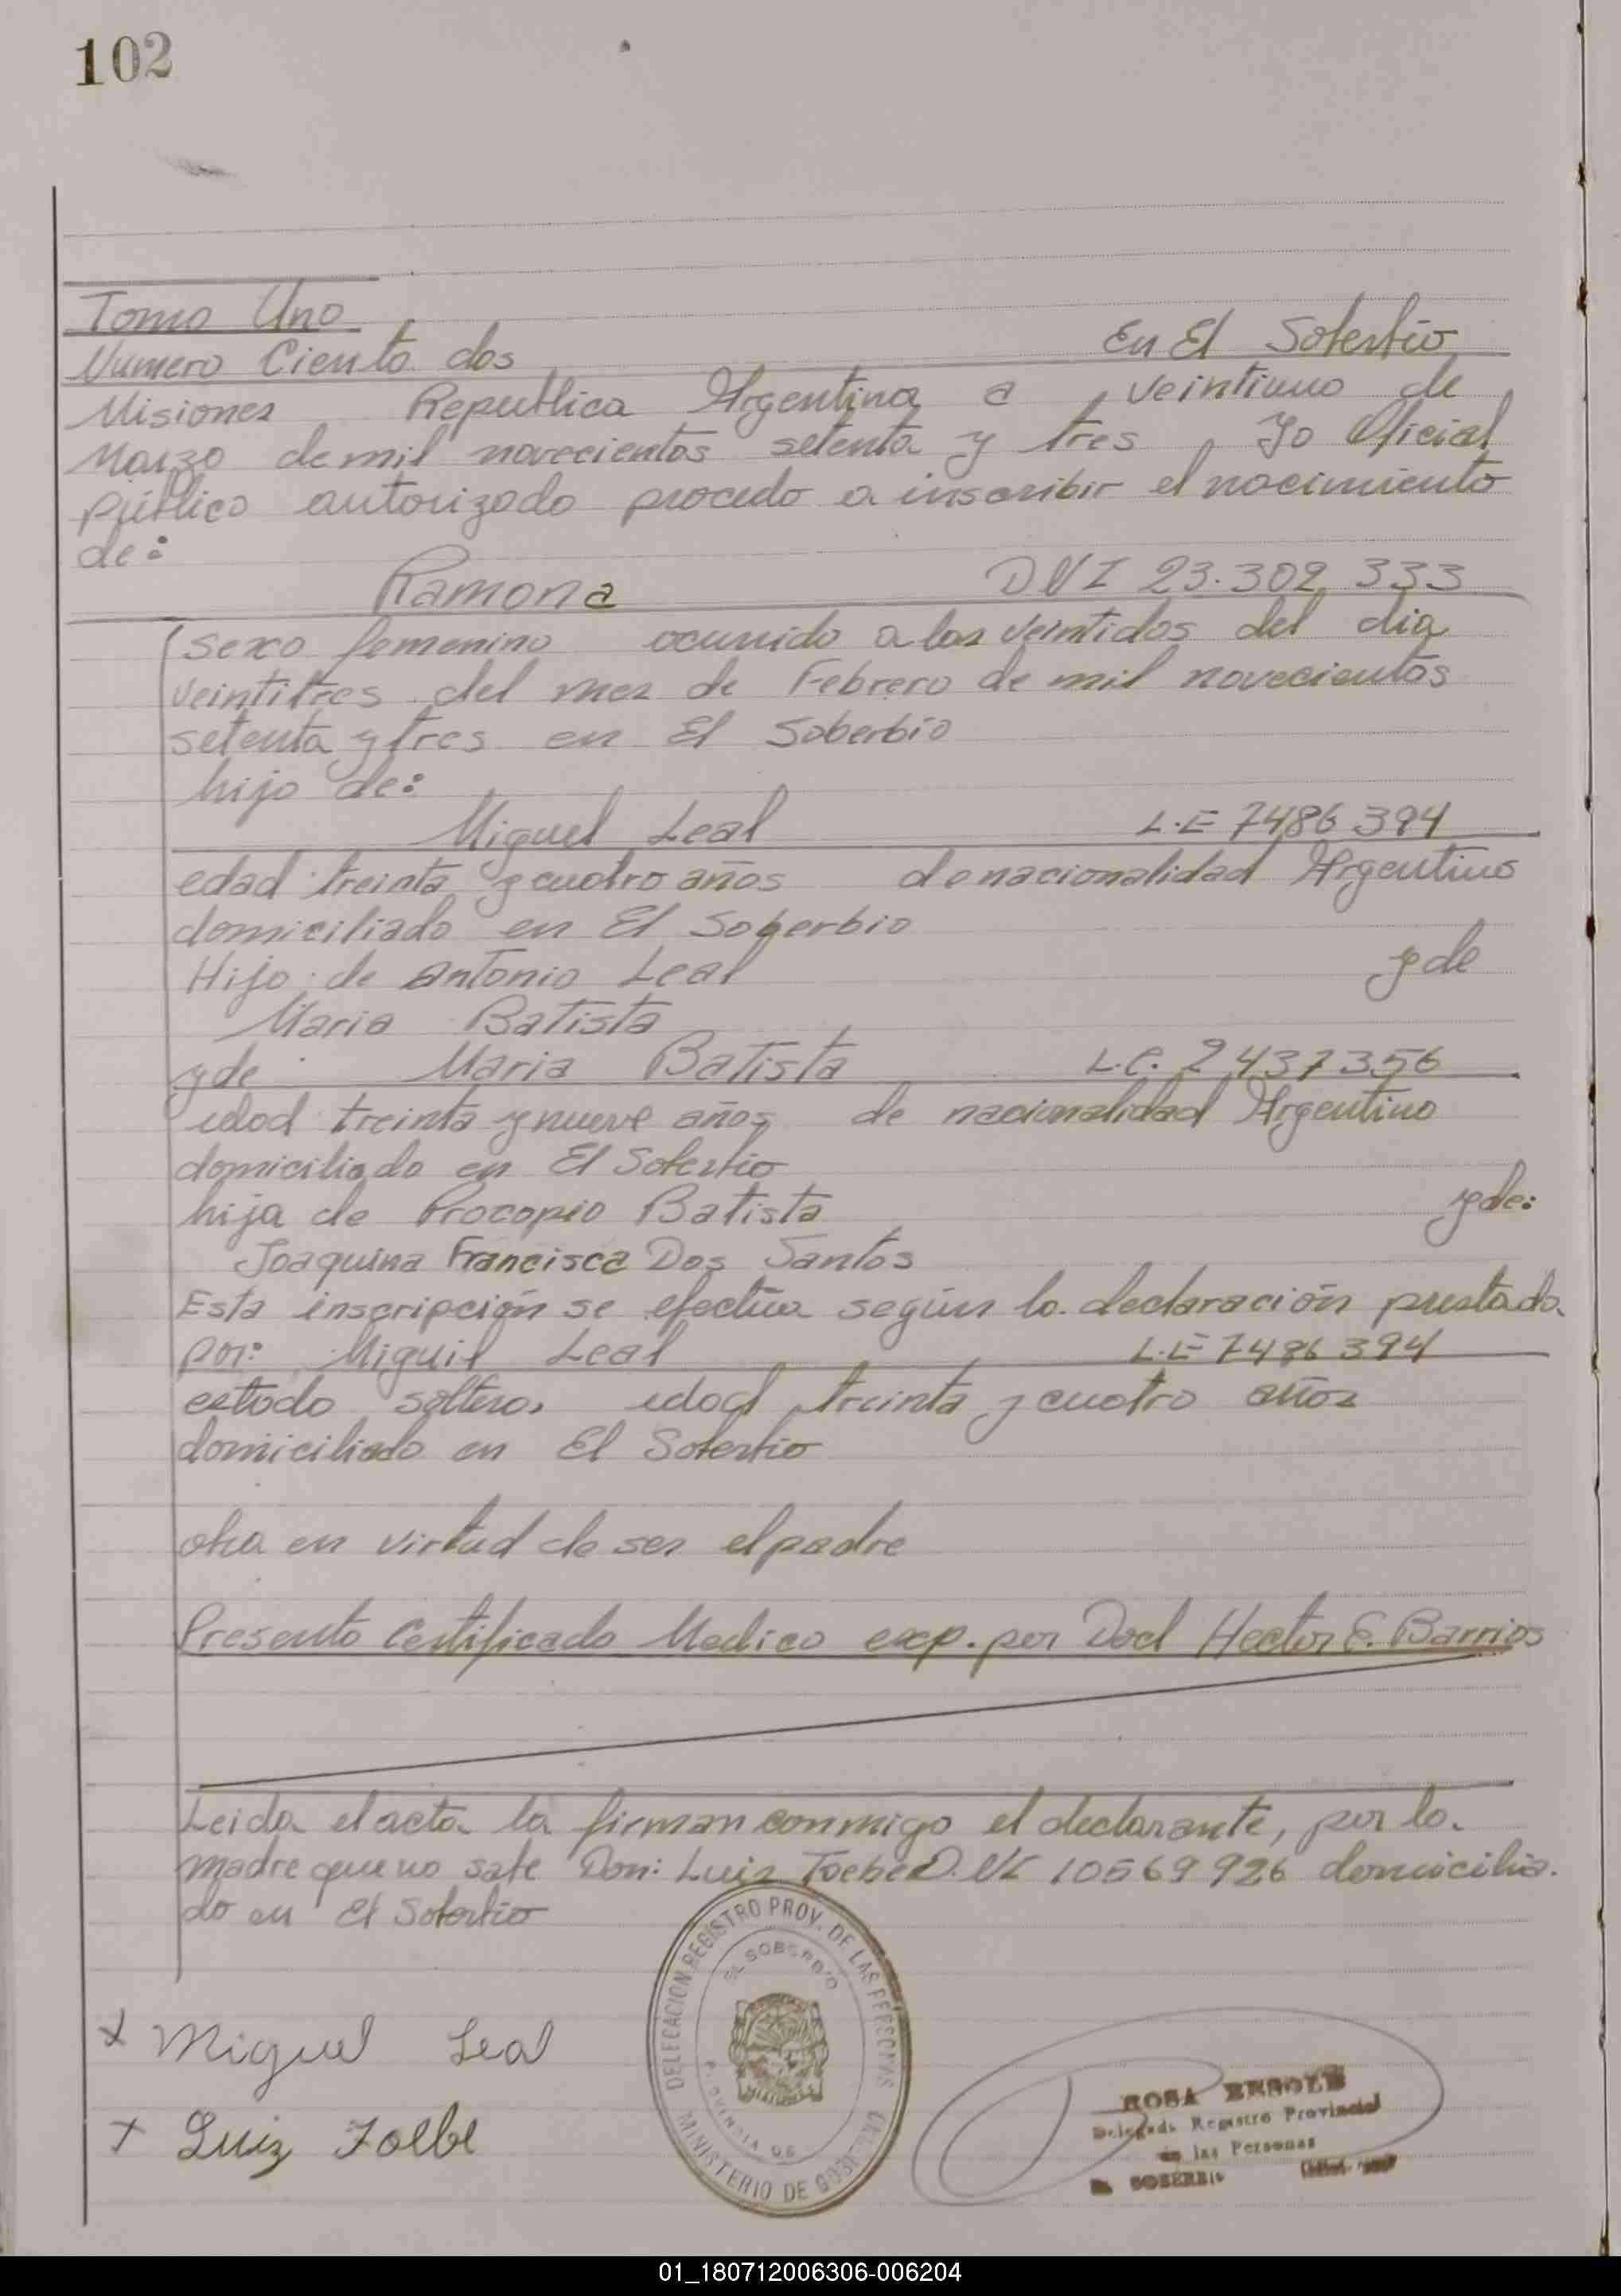 102
Tomo Uno
Numero Ciento dos En El Soberbio
Misiones Republica Argentina a veintiuno de
Marzo de mil novecientos setenta y tres Yo Oficial
público autorizado procedo a inscribir el nacimiento
de:
Ramona DNI 23.302 333
sexo femenino ocurrido a las veintidos del dia
veintitres del mes de Febrero de mil novecientos
setenta y tres en El Soberbio
hijo de:
Miguel Leal L.E 7486 394
edad treinta y cuatro años de nacionalidad Argentino
domiciliado en El Soberbio
Hijo de Antonio Leal y de
Maria Batista
y de Maria Batista L.C. 2437356
edad treinta y nueve años de nacionalidad Argentino
domiciliado en El Soberbio
hija de Procopio Batista y de:
Joaquina Francisca Dos Santos
Esta inscripción se efectúa según la declaración prestada
por: Miguil Leal L.E 7486 394
estado soltero, edad treinta y cuatro años
domiciliado en El Soberbio
obra en virtud de ser el padre
Presento Certificado Medico exp. por Doct Hector E. Barrios
Leida el acta la firman conmigo el declarante, por la
madre que no sabe Don: Luiz Toebe D.NI 10569926 domicilia-
do en El Soberbio
x Miguel Leal
x Luiz Toebe
DELEGACION REGISTRO PROV. DE LAS PERSONAS
EL SOBERBIO
PROVINCIA DE
MINISTERIO DE GOBIERNO
ROSA
Delegada Registro Provincial
de las Personas
EL SOBERBIO
01_180712006306-006204